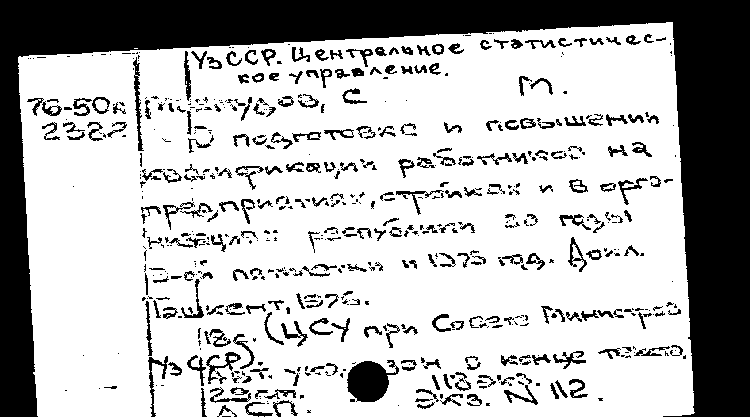 УзССР. Центральное статистичес-
кое управление. М.
76-50к Махмудов, С
2322 О подготовке и повышении
квалификации работников на
предприятиях, стройках и в орга-
низациях республики за годы
9-ой пятилетки и 1975 год. Докл.
Ташкент, 1976.
18с. (ЦСУ при Совете Министров
УзССР).
Авт. указан в конце текста.
118 экз.
ДСП. Экз. N 112.